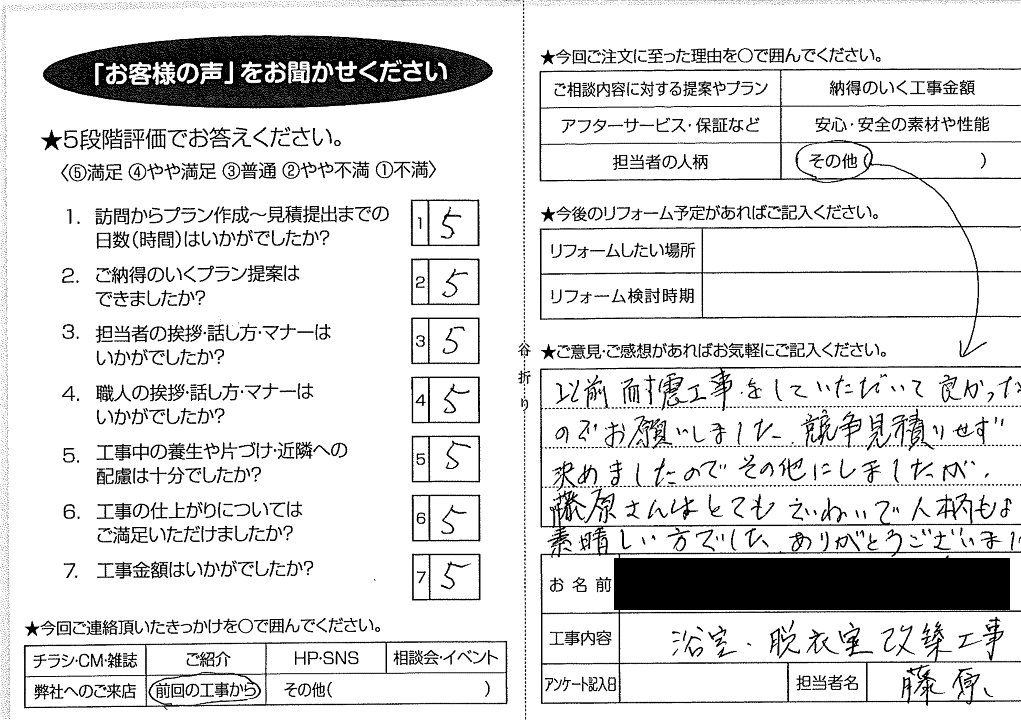 「お客様の声」をお聞かせください
★5段階評価でお答えください。
〈⑤満足 ④やや満足 ③普通 ②やや不満 ①不満〉
1. 訪問からプラン作成～見積提出までの
日数(時間)はいかがでしたか?
1 5
2. ご納得のいくプラン提案は
できましたか?
2 5
3. 担当者の挨拶・話し方・マナーは
いかがでしたか?
3 5
4. 職人の挨拶・話し方・マナーは
いかがでしたか?
4 5
5. 工事中の養生や片づけ・近隣への
配慮は十分でしたか?
5 5
6. 工事の仕上がりについては
ご満足いただけましたか?
6 5
7. 工事金額はいかがでしたか?
7 5
★今回ご連絡頂いたきっかけを○で囲んでください。
チラシ・CM・雑誌 ご紹介 HP・SNS 相談会・イベント
弊社へのご来店 前回の工事から その他( )
谷折り
★今回ご注文に至った理由を○で囲んでください。
ご相談内容に対する提案やプラン 納得のいく工事金額
アフターサービス・保証など 安心・安全の素材や性能
担当者の人柄 その他( )
★今後のリフォーム予定があればご記入ください。
リフォームしたい場所
リフォーム検討時期
★ご意見・ご感想があればお気軽にご記入ください。
以前耐震工事をしていただいて良かった
のでお願いしました。競争見積りせず
決めましたのでその他にしましたが、
藤原さんはとてもていねいで人柄もよ
素晴しい方でした。ありがとうございまし
お名前
工事内容 浴室・脱衣室改築工事
アンケート記入日 担当者名 藤原